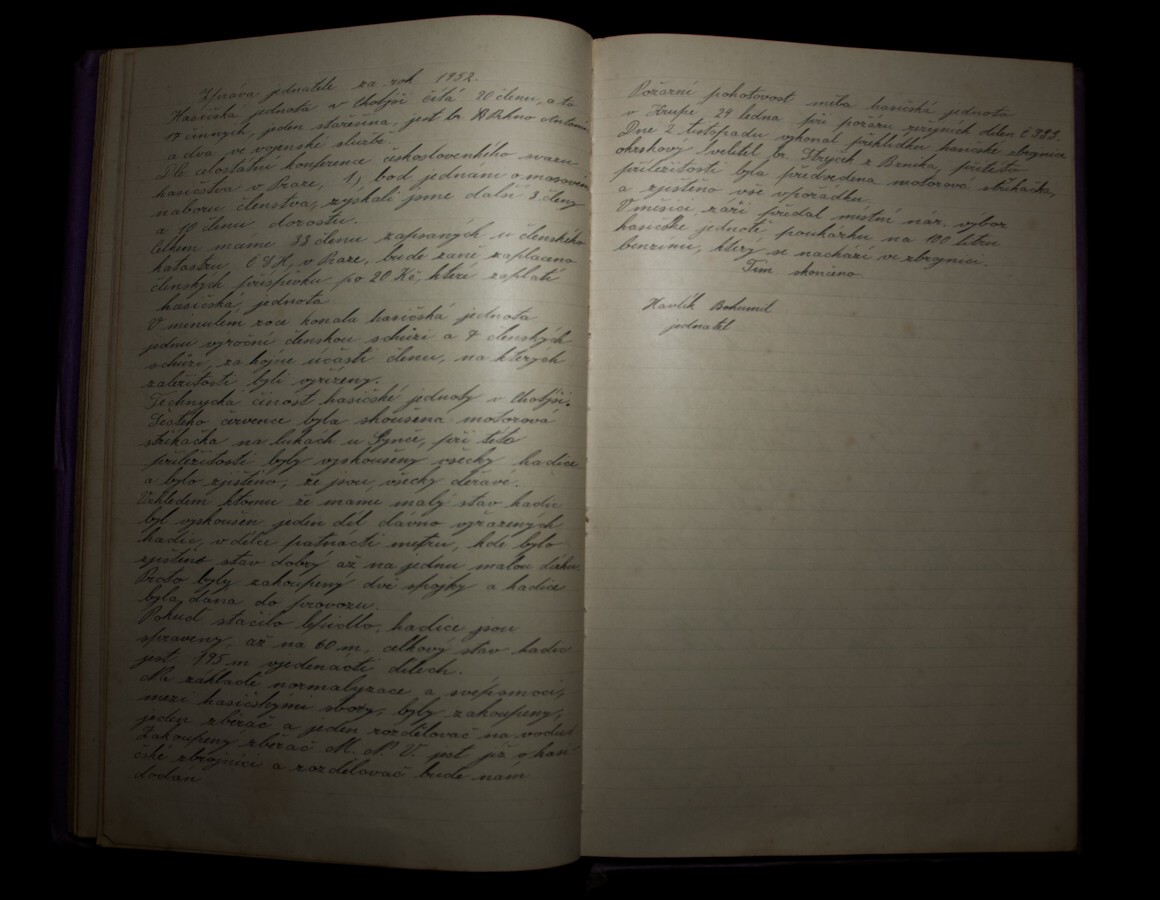 Zpráva jednatele za rok 1952.
Hasičská jednota v Chotýši čítá 20 členu, a to
17 činných, jeden stařešina, jest br. Antonín
a dva ve vojenské službě.
Dle celostatní konference československého svazu
hasičstva v Praze, 1, bod jednání o masovém
naboru členstva, zýskali jsme další 3. členy
a 10 členu dorostu.
Celkem mame 33 členu zapsaných u členského
katastru Č S H, v Praze, bude zaně zaplaceno
členských příspěvku po 20 Kč, které zaplatí
hasičská jednota
V minulém roce konala hasičská jednota
jednu výroční členskou schůzi a 7 členských
schůzí, za hojné účasti členu, na kterých
zaležitosti byli vyřízeny.
Technycká činost hasičské jednoty v Chotýši.
Šestého července byla skoušena motorová
stříkačka na lukách u Synče, při této
příležitosti byly vyskoušeny všecky hadice
a bylo zjištěno, že jsou všecky děravé.
Vzhledem ktomu že mame malý stav hadic
byl vyskoušen jeden díl dávno vyřazených
hadic, v délce patnácti metru, kde bylo
zjištěno stav dobrý až na jednu malou dírku.
Proto byly zakoupený dvě spojky a hadice
byla dána do provozu.
Pokuď stačilo lepidlo, hadice jsou
spraveny, až na 60 m, celkový stav hadic
jest 195 m vjedenácti dílech.
Na základě normalyzace a svépomoci,
mezi hasičskými sbory, byly zakoupeny,
jeden zběrač a jeden rozdělovač na vodu
Zakoupený zběrač M. N. V. jest již v hasi-
čské zbrojnici a rozdělovač bude nám
dodán
Požární pohotovost měla hasičská jednota
v Krupé 29 ledna při požáru zvijních dílen č 333.
Dne 2 listopadu vykonal přehlídku hasičské zbrojnice
okrskový velitel br. Strejček z Brníka, přitéto
příležitosti byla předvedena motorová stříkačka,
a zjištěno vše vpořádku.
V měsíci září přidal místní nár. výbor
hasičské jednotě poukázku na 100 litru
benzínu, který se nachází ve zbrojnici.
Tím skončeno
Havlík Bohumil
jednatel